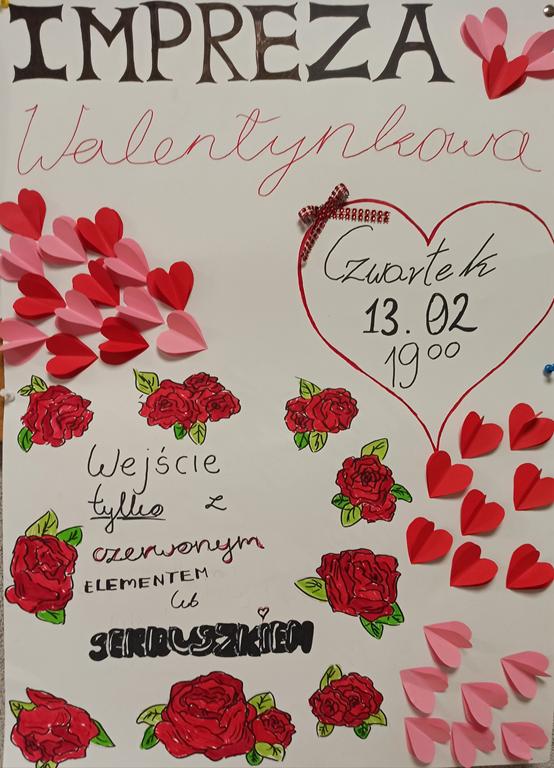 IMPREZA
Walentynkowa
Czwartek
13.02
19⁰⁰
Wejście
tylko z
czerwonym
ELEMENTEM
lub
SERDUSZKIEM